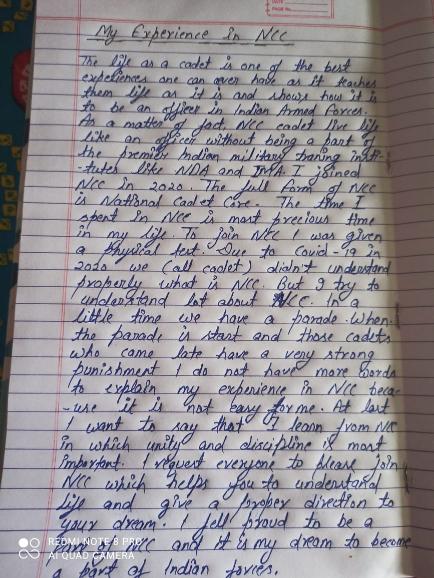 DATE
PAGE No.
My Experience In NCC
The life as a cadet is one of the best
experiences one can ever have as it teaches
them life as it is and shows how it is
to be an officer in Indian Armed Forces.
As a matter of fact, NCC cadet live life
like an officer without being a part of
the premier Indian military traning insti-
-tutes like NDA and IMA. I joined
NCC in 2020. The full form of NCC
is National Cadet Core. The time I
spent in NCC is most precious time
in my life. To join NCC I was given
a physical test. Due to Covid-19 in
2020 we (all cadet) didn't understand
properly what is NCC. But I try to
understand lot about NCC. In a
little time we have a parade. When
the parade is start and those cadets
who came late have a very strong
punishment I do not have more words
to explain my experience in NCC beca-
-use it is not easy for me. At last
I want to say that I learn from NCC
in which unity and discipline is most
important. I request everyone to please join
NCC which helps you to understand
life and give a proper direction to
your dream. I fell proud to be a
NCC and it is my dream to become
a part of Indian forces.
REDMI NOTE 8 PRO
AI QUAD CAMERA